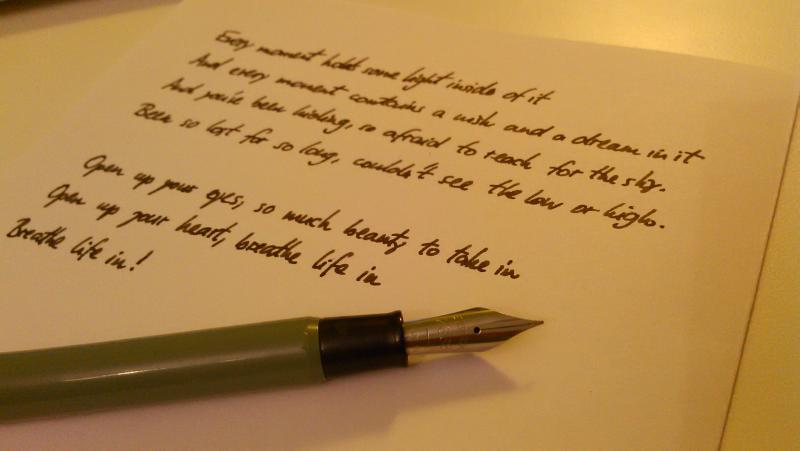 Every moment holds some light inside of it
And every moment contains a wish and a dream in it
And you've been hiding, so afraid to reach for the sky.
Been so lost for so long, couldn't see the low or high.
Open up your eyes, so much beauty to take in
Open up your heart, breathe life in
Breathe life in!